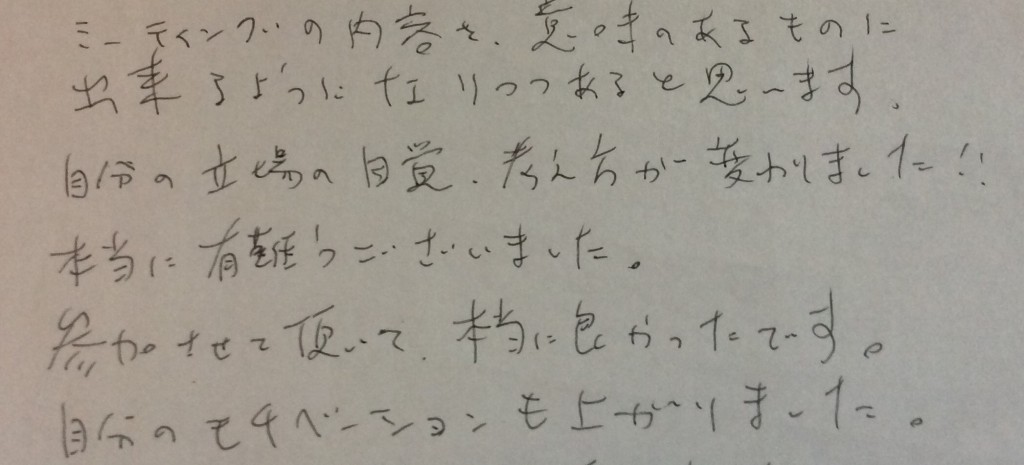 ミーティングの内容を、意味のあるものに
出来るようになりつつあると思います。
自分の立場の自覚、考え方が変わりました!!
本当に有難うございました。
参加させて頂いて、本当に良かったです。
自分のモチベーションも上がりました。